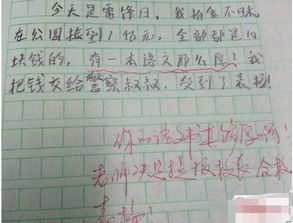 今天是雷锋日，我拾金不昧
在公园捡到1亿元，全部都是10
块钱的，有一本语文那么厚！我
把钱交给警察叔叔，受到了表扬！
你的语文书真够厚啊！
老师决定提报校长全校
表扬！